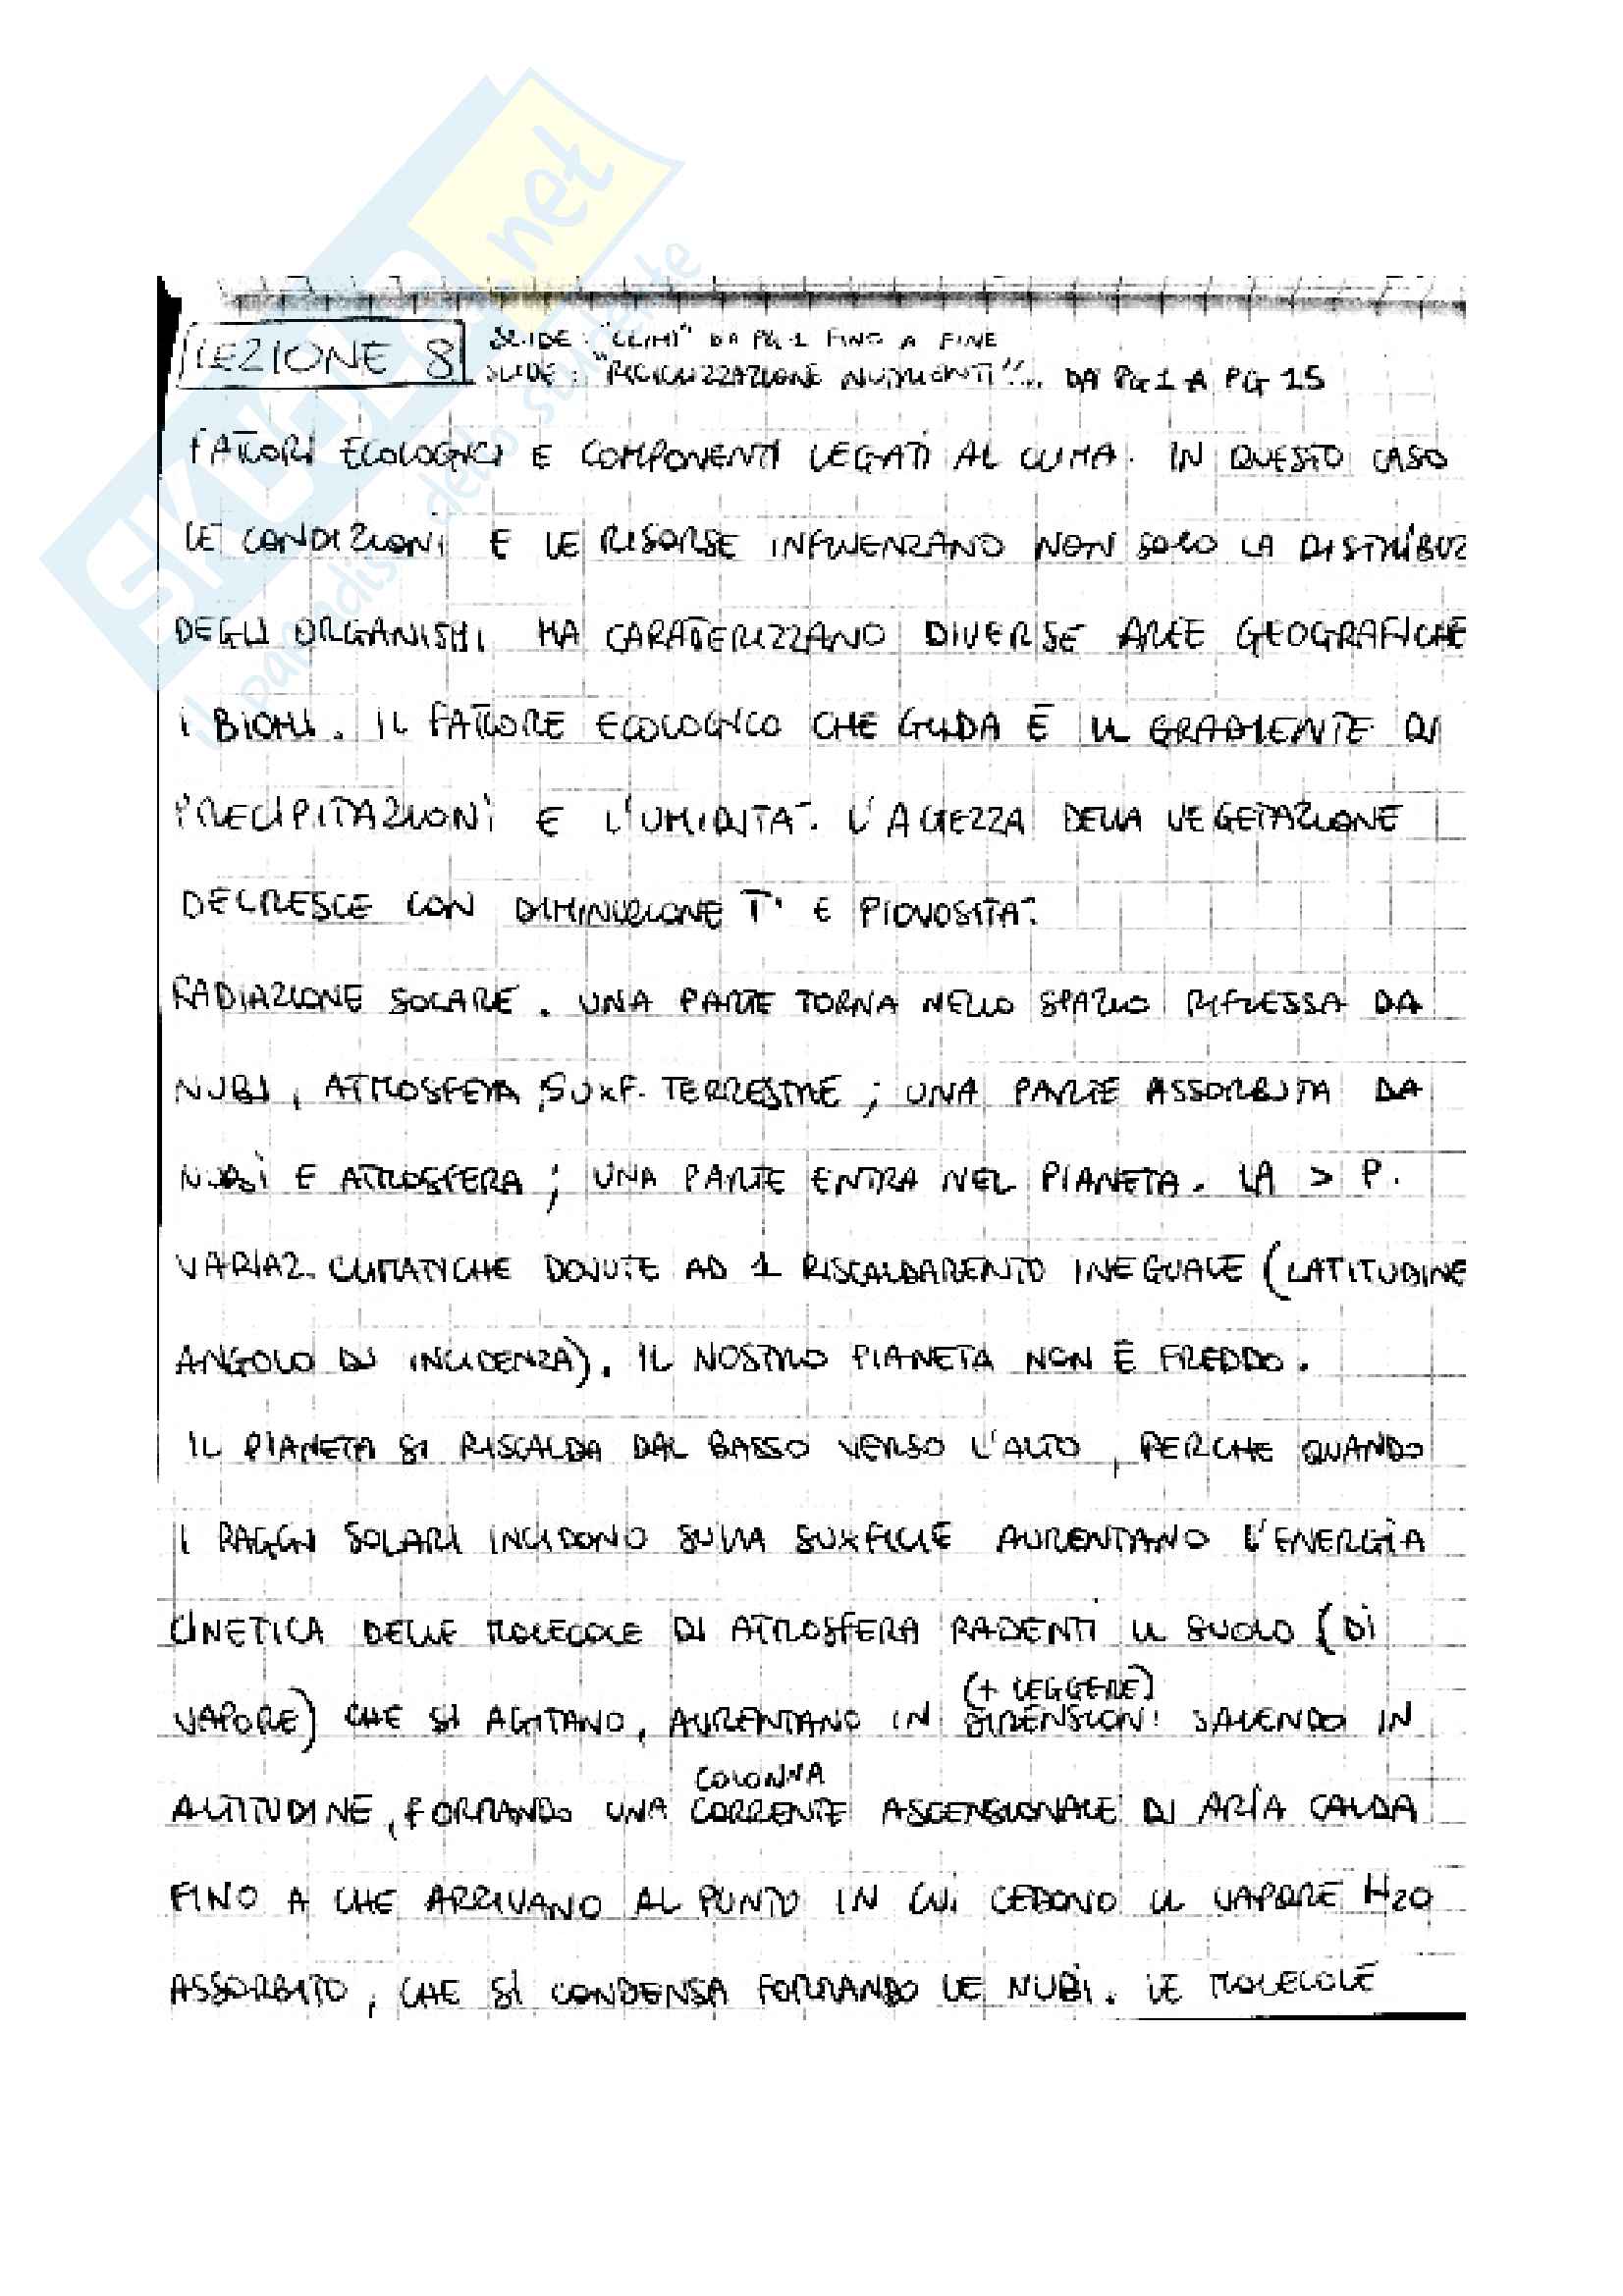 LEZIONE 8
SLIDE: "CLIMI" DA PG 1 FINO A FINE
SLIDE: "RICICLIZZAZIONE NUTRIENTI"... DA PG 1 A PG 15
FATTORI ECOLOGICI E COMPONENTI LEGATI AL CLIMA. IN QUESTO CASO
LE CONDIZIONI E LE RISORSE INFLUENZANO NON SOLO LA DISTRIBUZ
DEGLI ORGANISMI MA CARATERIZZANO DIVERSE AREE GEOGRAFICHE
I BIOMI. IL FATTORE ECOLOGICO CHE GUIDA È IL GRADIENTE DI
PRECIPITAZIONI E L'UMIDITA'. L'ALTEZZA DELLA VEGETAZIONE
DECRESCE CON DIMINUZIONE T° E PIOVOSITA'.
RADIAZIONE SOLARE. UNA PARTE TORNA NELLO SPAZIO RIFLESSA DA
NUBI, ATMOSFERA, SUXF. TERRESTRE; UNA PARTE ASSORBITA DA
NUBI E ATMOSFERA; UNA PARTE ENTRA NEL PIANETA. LA > P.
VARIAZ. CLIMATICHE DOVUTE AD 1 RISCALDAMENTO INEGUALE (LATITUDINE
ANGOLO DI INCIDENZA). IL NOSTRO PIANETA NON È FREDDO.
IL PIANETA SI RISCALDA DAL BASSO VERSO L'ALTO, PERCHE QUANDO
I RAGGI SOLARI INCIDONO SULLA SUXFICIE AUMENTANO L'ENERGIA
CINETICA DELLE MOLECOLE DI ATMOSFERA RADENTI IL SUOLO (DI
VAPORE) CHE SI AGITANO, AUMENTANO IN DIMENSIONI (+ LEGGERE) SALENDO IN
ALTITUDINE, FORMANDO UNA COLONNA CORRENTE ASCENSIONALE DI ARIA CALDA
FINO A CHE ARRIVANO AL PUNTO IN CUI CEDONO IL VAPORE H2O
ASSORBITO, CHE SI CONDENSA FORMANDO LE NUBI. LE MOLECOLE
SKUOLA.net
il paradiso dello studente